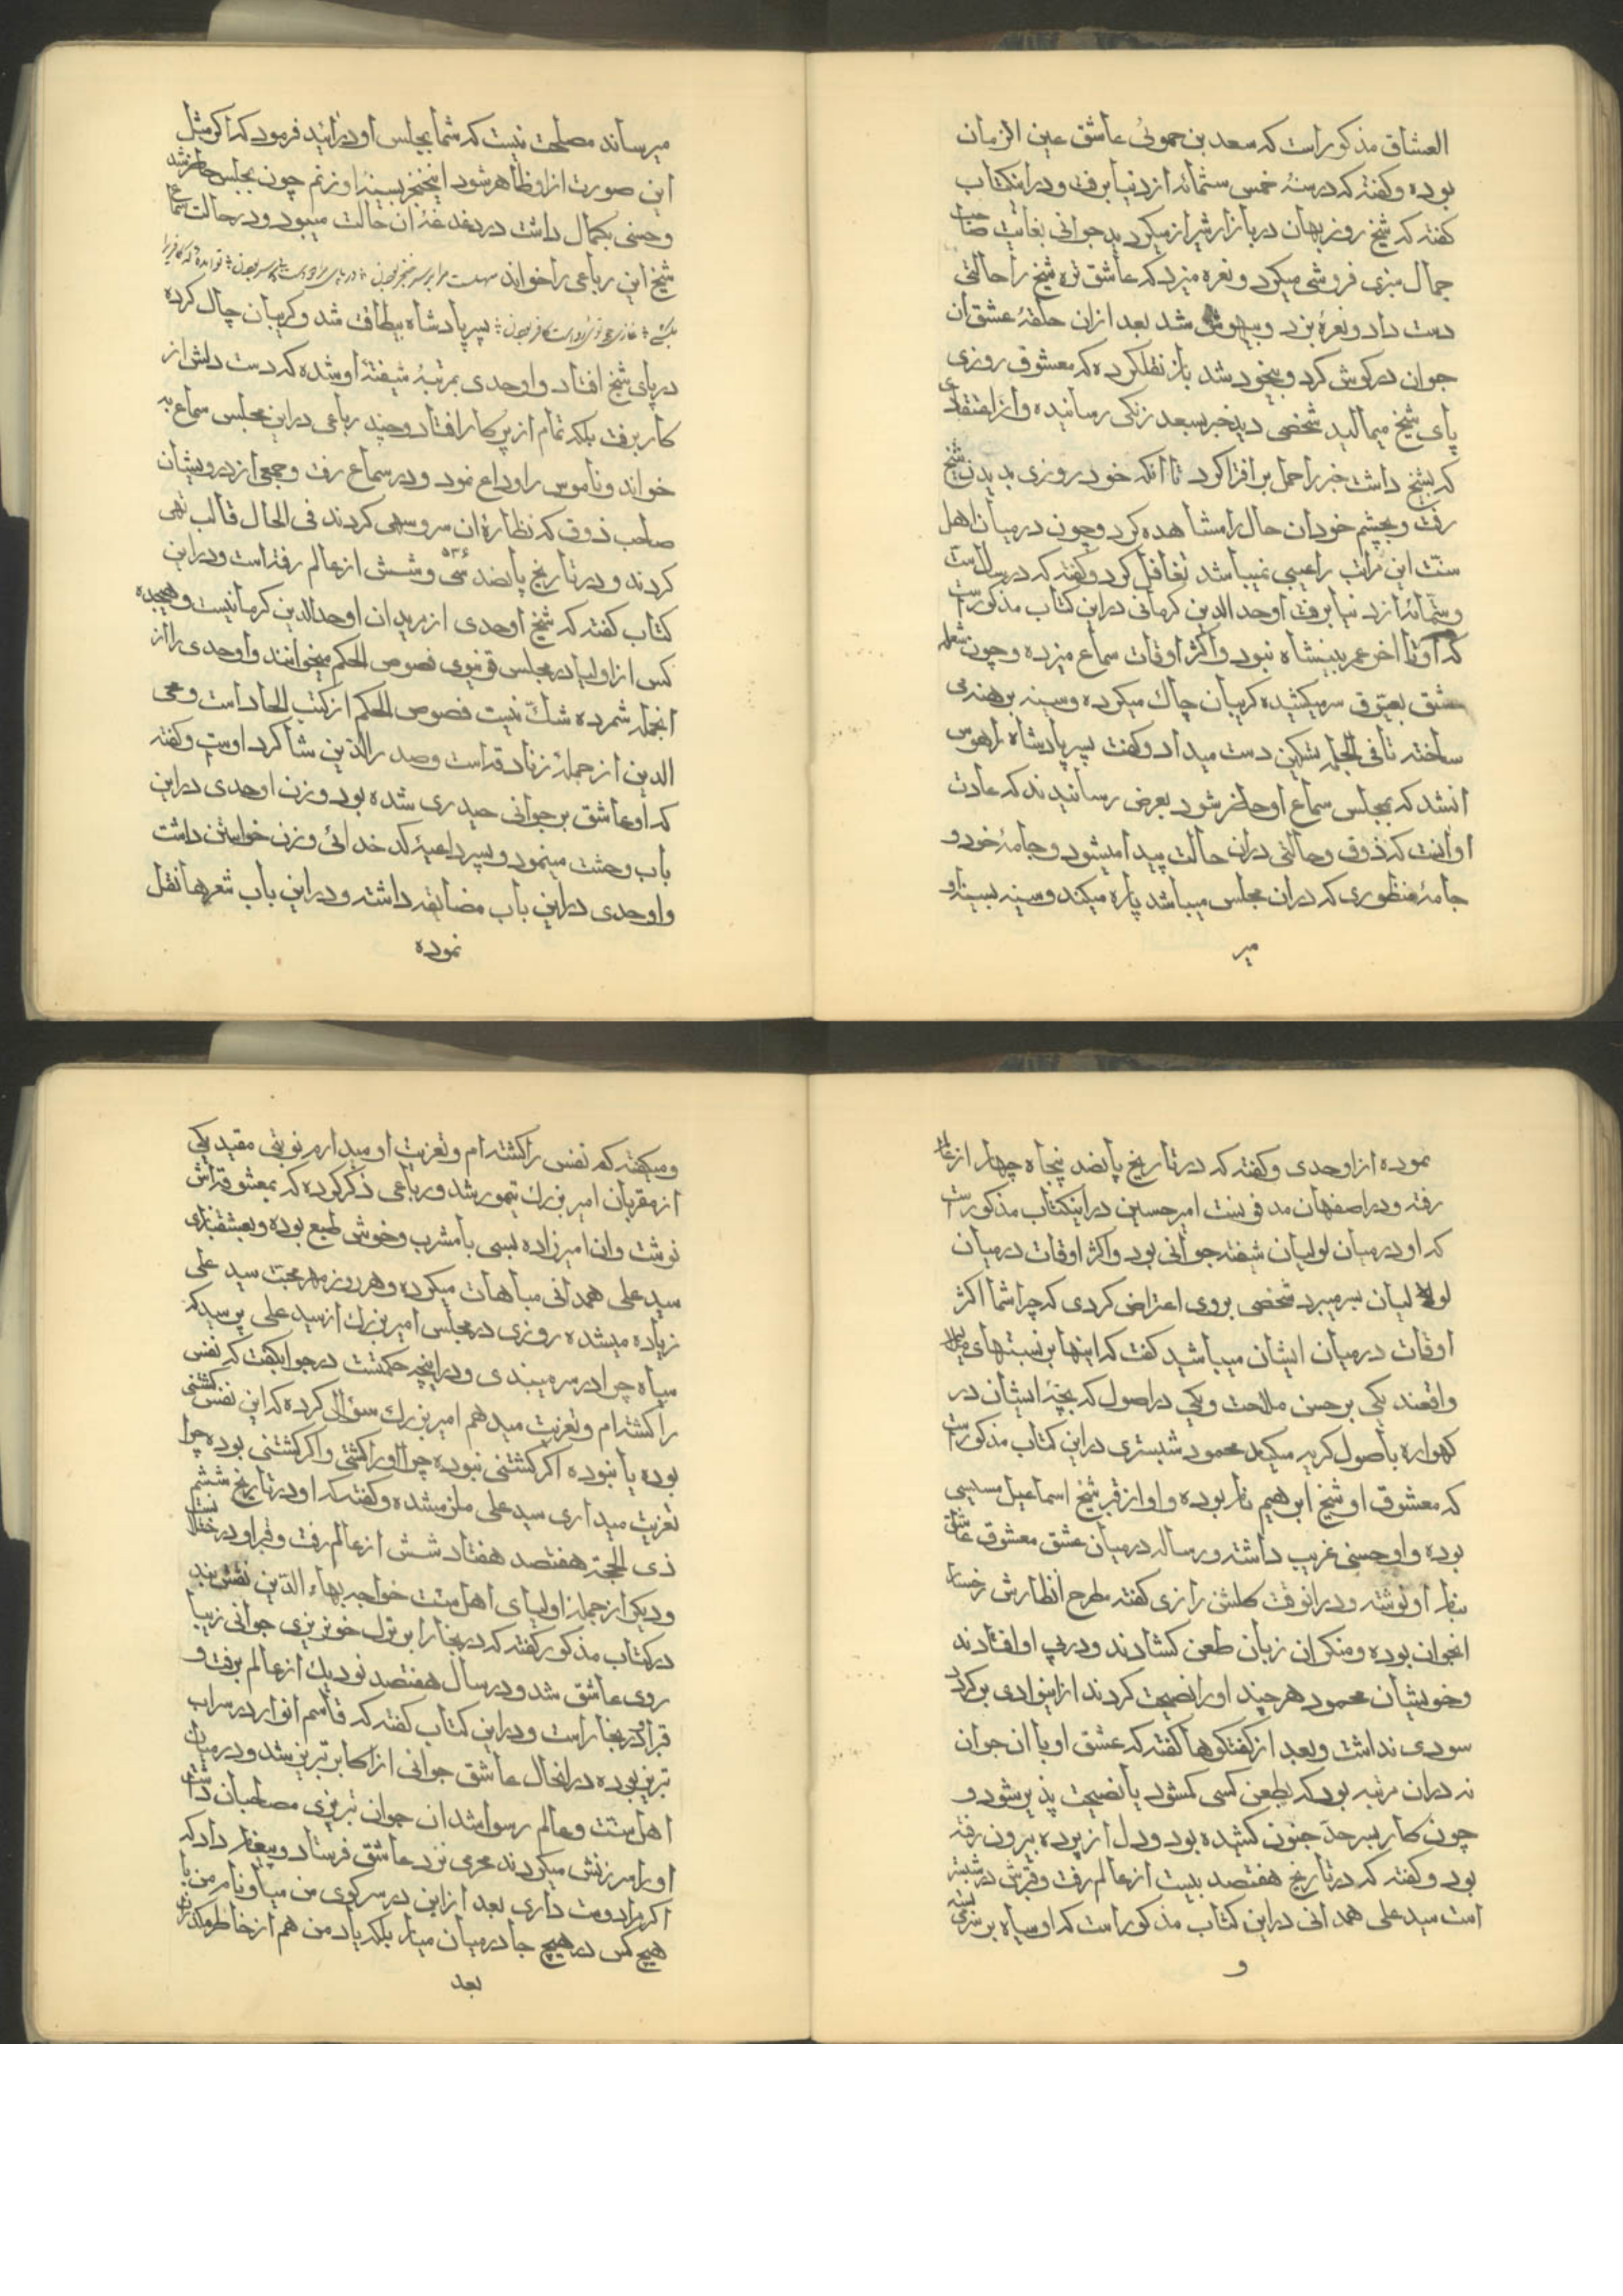 العشاق مذکور است که سعد بن حموئی عاشق عین الزمان
بوده و گفته که در سنهٔ خمس ستمائه از دنیا برفت و در اینکتاب
گفته که شیخ روزبهان در بازار شیراز میکردید جوانی بغایت صاحب
جمال تنزی فروشی میکرد و نعره میزد که عاشق تره شیخ را حالتی
دست داد و نعرهٔ بزد و بیهوش شد بعد ازان حلقهٔ عشق ان
جوان در کوش کرد و بیخود شد باز نقلکرده که معشوق روزی
پای شیخ میمالید شخصی دید خبر بسعد زنکی رسانیده و از اعتقادی
که بشیخ داشت خبر را حمل بر افترا کرد تا انکه خود روزی بدیدن شیخ
رفت و بچشم خود ان حال را مشاهده کرد و چون در میان اهل
سنت این مراتب را عیبی نمیباشد تغافل کرد و گفته که در سال
و ستمائه از دنیا برفت اوحد الدین کرمانی در این کتاب مذکور است
که او تا اخر عمر بیبنشاه نبود و اکثر اوقات سماع میزده و چون شعله
عشق بعیوق سر میکشیده کریبان چاك میکرده و سینه برهنه می
ساخته تا فی الجمله تسکین دست میداد و گفت پسر پادشاه را هوس
انشد که بمجلس سماع او حاضر شود بعرض رسانیدند که عادت
او انست که ذوق و حالتی دران حالت پیدا میشود و جامهٔ خود و
جامهٔ منظوری که دران مجلس میباشد پاره میکند و سینه بسینهٔ او
میر
میرساند مصلحت نیست که شما بمجلس او درائید فرمود که اکر مثل
این صورت از او ظاهر شود اینخنجر بسینهٔ او زنم چون بمجلس حاضر شد
و حسنی بکمال داشت در دغدغهٔ ان حالت میبود و در حالت سماع
شیخ این رباعی را خواند سهلست مرا بر سر خنجر بودن در پای مراد دوست بی سر بودن تو امدهٔ که کافریرا
بکشی غازی چو توئی رواست کافر بودن پسر پادشاه بیطاقت شد و کریبان چاك کرده
در پای شیخ افتاد و اوحدی بمرتبهٔ شیفتهٔ او شده که دست دلش از
کار برفت بلکه تمام از پر کار افتاد و چند رباعی در این مجلس سماع به
خواند و ناموس را وداع نمود و در سماع رفت و جمعی از درویشان
صاحب ذوق که نظارهٔ ان سرو سهی کردند فی الحال قالب تهی
کردند و در تاریخ پانصد سی و شش ۵۳۶ از عالم رفته است و در این
کتاب گفته که شیخ اوحدی از مریدان اوحدالدین کرمانیست و هیجده
کس از اولیا در مجلس قونیوی فصوص الحکم میخوانند و اوحدی را از
انجمله شمرده شكّ نیست فصوص الحکم از کتب الحاد است و محی
الدین از جملهٔ زنادقه است و صدرالدّین شاکرد اوست و گفته
که او عاشق بر جوانی حیدری شده بود و زن اوحدی در این
باب وحشت مینمود و پسر داعیهٔ کدخدائی و زن خواستن داشت
و اوحدی در این باب مضایقه داشته و در این باب شعرها نقل
نموده
نموده از اوحدی و گفته که در تاریخ پانصد پنجاه چهار از عالم
رفته و در اصفهان مدفونست امیر حسین در اینکتاب مذکور است
که او در میان لولیان شیفته جوانی بود و اکثر اوقات در میان
لولیان بسر میبرد شخصی بروی اعتراض کردی که چرا شما اکثر
اوقات در میان ایشان میباشید گفت که اینها بر نسبتهای
واقعند یکی بر حسن ملاحت و یکی در اصول که بچهٔ ایشان در
کهواره باصول کریه میکند محمود شبستری در این کتاب مذکور است
که معشوق او شیخ ابرهیم نام بوده و او از قبر شیخ اسماعیل سیسی
بوده و او حسنی غریب داشته و رساله در میان عشق معشوق عاشق
بنام او نوشته و درانوقت کلشن رازی گفته مطرح انظارش رخسار
انجوان بوده و منکران زبان طعن کشادند و در پی او افتادند
و خویشان محمود هر چند او را نصیحت کردند از اینوادی بر کردد
سودی نداشت و بعد از کفتکوها گفته که عشق او با ان جوان
نه دران مرتبه بود که بطعن کسی کم شود یا نصیحت پذیر شود و
چون کار بسر حدّ جنون کشیده بود و دل از پرده بیرون رفته
بود و گفته که در تاریخ هفتصد بیست از عالم رفت و قبرش در شبستر
است سید علی همدانی در این کتاب مذکور است که او سیاه بر سر می بسته
و
و میگفته که نفس را کشته ام و تعزیت او میدارم نوبتی مقید یکی
از مقربان امیر بزرك تیمور شد و رباعی ذکر کرده که بمعشوقه اش
نوشت و ان امیرزاده بسی با مشرب و خوش طبع بوده و بعشقبازی
سید علی همدانی مباهات میکرده و هر روز مهر محبت سید علی
زیاده میشده روزی در مجلس امیر بزرك از سید علی پرسید که
سیاه چرا در سر میبندی و در اینچه حکمتست در جواب گفت که نفس
را کشته ام و تعزیت میدهم امیر بزرك سؤال کرده که این نفس کشتنی
بوده یا نبوده اکر کشتنی نبوده چرا او را کشتی و اکر کشتنی بوده چرا
تعزیت میداری سید علی ملزم شده و گفته که او در تاریخ ششم
ذی الحجّه هفتصد هفتاد شش از عالم رفت و قبر او در ختلانست
و دیکر از جمله اولیای اهل سنت خواجه بهاء الدّین نقش بند
در کتاب مذکور گفته که در بخارا بر ترك خونریزی جوانی زیبا
روی عاشق شد و در سال هفتصد نود یك از عالم برفت و
قبر او در بخارا است و در این کتاب گفته که قاسم انوار در سراب
تبریز بوده در انحال عاشق جوانی از اکابر تبریز شد و در میان
اهل سنت و عالم رسوا شد ان جوان تبریزی مصاحبان داشت
او را سرزنش میکردند محرمی نزد عاشق فرستاد و پیغام داد که
اکر مرا دوست داری بعد از این در سر کوی من میا و نام من با
هیچ کس در هیچ جا در میان میار بلکه یاد من هم از خاطر مکذران
بعد